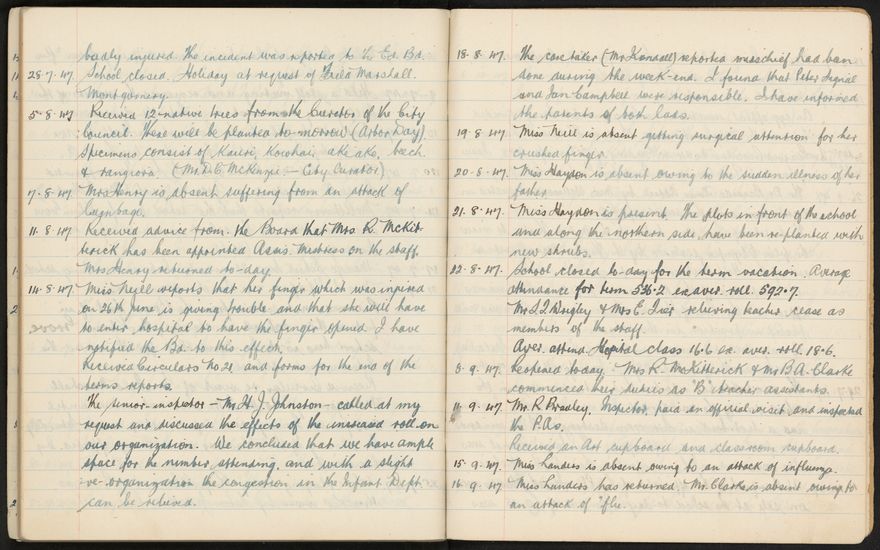 badly injured. The incident was reported to the Ed. Bd.
28.7.47. School closed. Holiday at request of Field Marshall.
Montgomery.
5.8.47 Received 12 native trees from the Curator of the City
Council. These will be planted to-morrow (Arbor Day).
Specimens consist of Kauri, Kowhai, ake ake, beech
& rangiora (Mr McKenzie - City Curator)
7.8.47 Mrs Henry is absent suffering from an attack of
lumbago.
11.8.47 Received advice from the Board that Mrs. R. McKit-
terick has been appointed Assis. Mistress on the staff.
Mrs Henry returned to-day.
14.8.47. Miss Neill reports that her finger which was injured
on 26th June is giving trouble and that she will have
to enter hospital to have the finger opened. I have
notified the Bd. to this effect.
Received Circulars No. 21, and forms for the end of the
terms reports.
The senior-inspector - Mr. H. J. Johnston - called at my
request and discussed the effects of the increased roll on
our organization. We concluded that we have ample
space for the number attending, and with a slight
re-organization the congestion in the Infant Dept.
can be relieved.
18.8.47. The caretaker (Mr Kendall) reported mischief had been
done during the week-end. I found that Peter
and Ian Campbell were responsible. I have informed
the parents of both lads.
19.8.47 Miss Neill is absent getting surgical attention for her
crushed finger.
20.8.47. Miss Haydon is absent owing to the sudden illness of her
father.
21.8.47. Miss Haydon is present. The plots in front of the school
and along the northern side, have been re-planted with
new shrubs.
22.8.47. School closed to-day for the term vacation. Average
attendance for term 536.2 ex aver. roll. 592.7.
Mr. Wrigley & Mrs E. relieving teacher cease as
members of the staff.
Aver. attend. Hospital class 16.6 ex. aver. roll 18.6.
8.9.47. Reopened today. Mrs R. McKitterick & Mr B.A. Clarke
commenced their duties as "B" teacher assistants.
11.9.47. Mr. R Bradley. Inspector, paid an official visit and inspected
the P.As.
Received an Art cupboard and classroom cupboard.
15.9.47. Miss Landers is absent owing to an attack of influenza.
16.9.47 Miss Landers has returned. Mr. Clarke is absent owing to
an attack of 'flu.